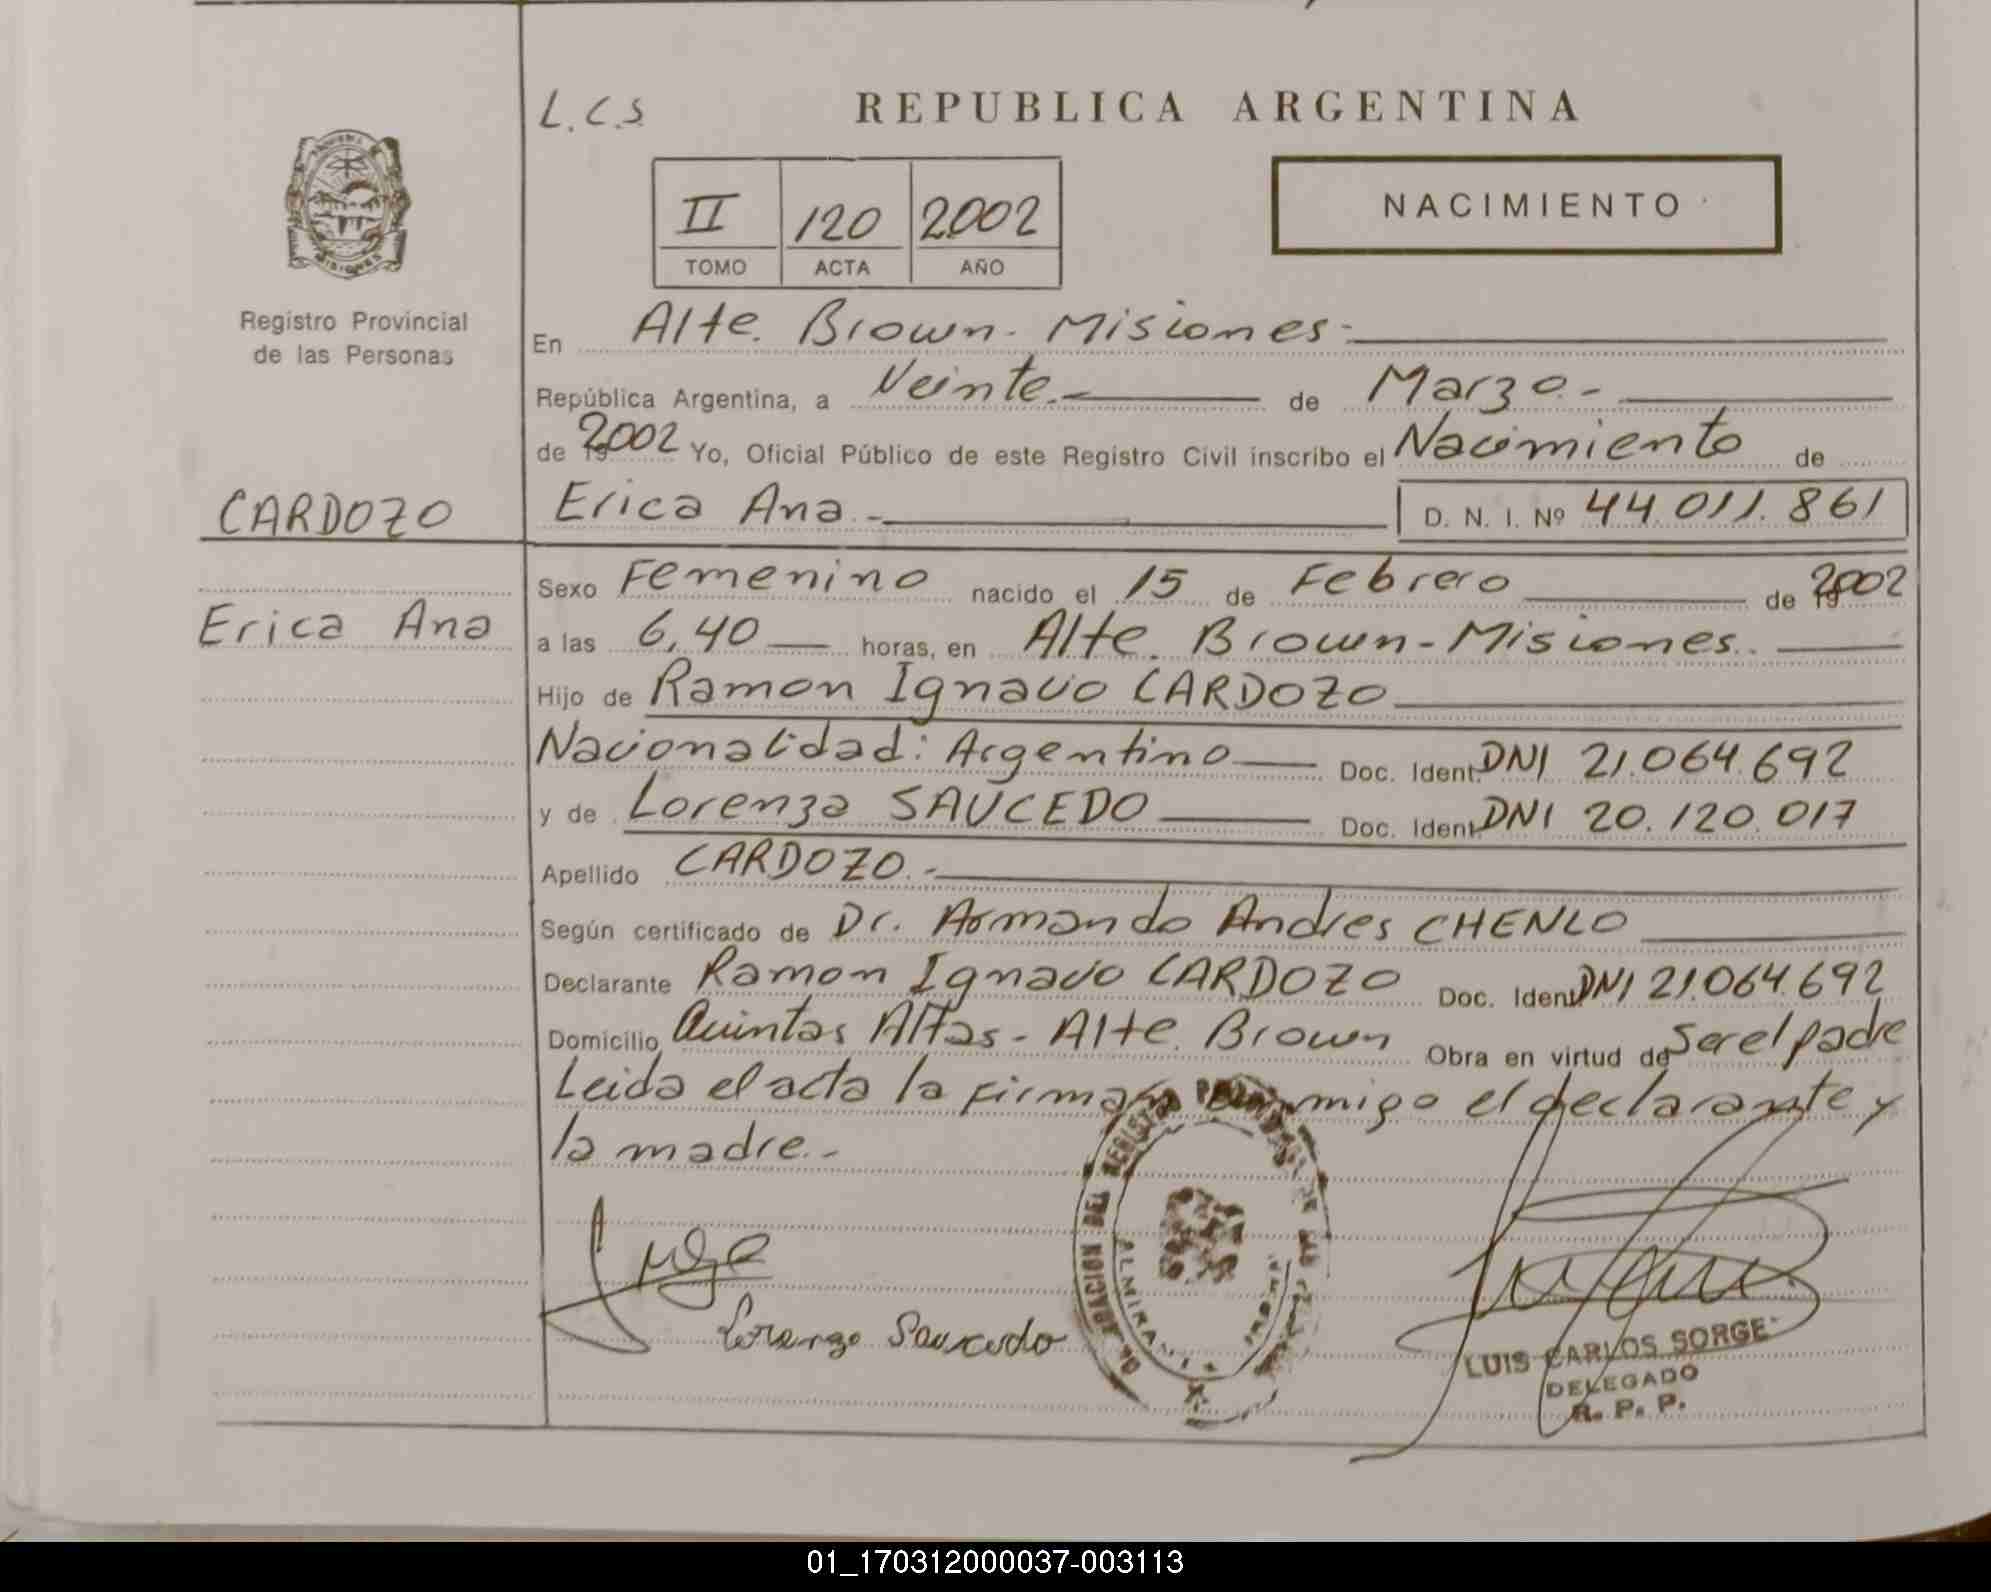 L.C.S.
REPUBLICA ARGENTINA
II 120 2002
TOMO ACTA AÑO
NACIMIENTO
MISIONES
Registro Provincial
de las Personas
En Alte. Brown - Misiones.-
República Argentina, a Veinte.- de Marzo.-
de 2002 Yo, Oficial Público de este Registro Civil inscribo el Nacimiento de
CARDOZO
Erica Ana.- D. N. I. Nº 44.011.861
Sexo Femenino nacido el 15 de Febrero de 2002
Erica Ana
a las 6,40 horas, en Alte. Brown - Misiones.
Hijo de Ramon Ignacio CARDOZO
Nacionalidad: Argentino Doc. Ident. DNI 21.064.692
y de Lorenza SAUCEDO Doc. Ident. DNI 20.120.017
Apellido CARDOZO.-
Según certificado de Dr. Armando Andres CHENLO
Declarante Ramon Ignacio CARDOZO Doc. Ident. DNI 21.064.692
Domicilio Quintas Altas - Alte. Brown Obra en virtud de Ser el padre
Leida el acta la firman conmigo el declarante y
la madre.-
DELEGACION DEL REGISTRO DE LAS
Lorenza Saucedo
LUIS CARLOS SORGE
DELEGADO
R. P. P.
01_170312000037-003113